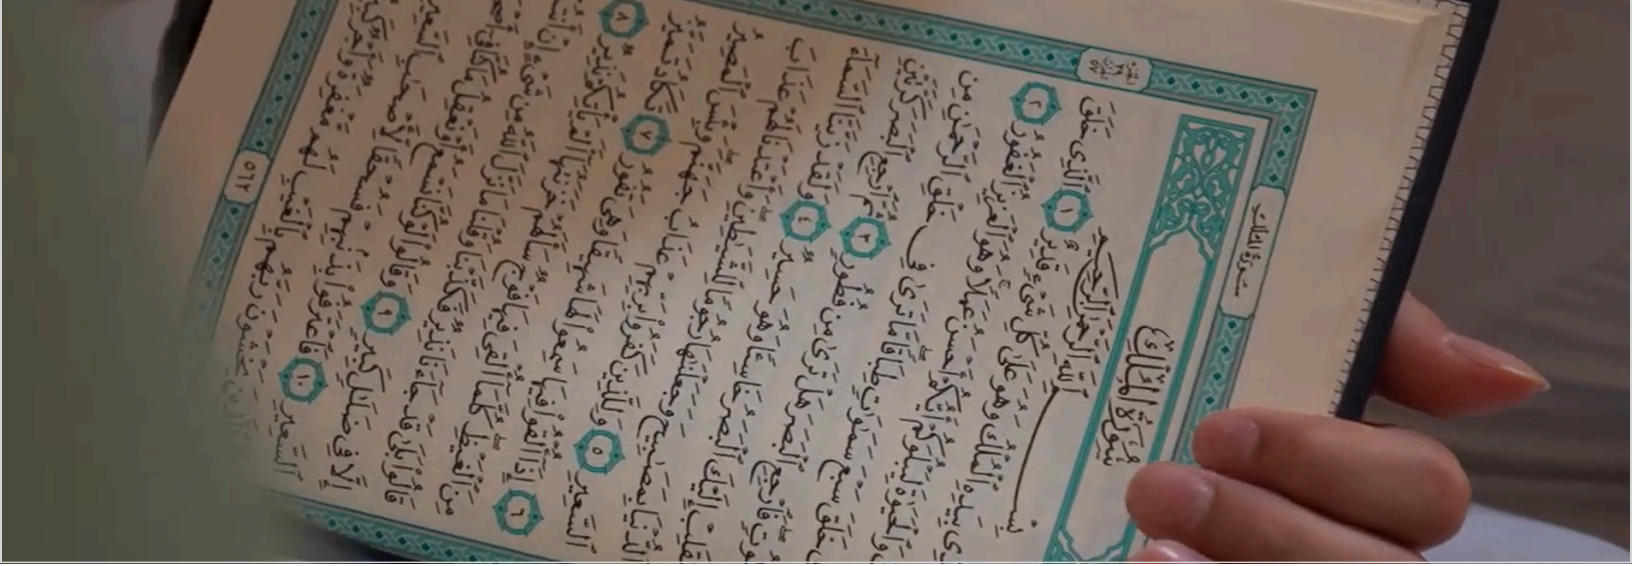 سُورَةُ المُلْكِ
سُورَةُ المُلْكِ
ٱللَّهِ ٱلرَّحْمَٰنِ ٱلرَّحِيمِ
بِيَدِهِ ٱلْمُلْكُ وَهُوَ عَلَىٰ كُلِّ شَىْءٍ قَدِيرٌ ١ ٱلَّذِى خَلَقَ
وَٱلْحَيَوٰةَ لِيَبْلُوَكُمْ أَيُّكُمْ أَحْسَنُ عَمَلًا ۚ وَهُوَ ٱلْعَزِيزُ ٱلْغَفُورُ ٢
خَلَقَ سَبْعَ سَمَٰوَٰتٍ طِبَاقًا ۖ مَّا تَرَىٰ فِى خَلْقِ ٱلرَّحْمَٰنِ مِن
فَٱرْجِعِ ٱلْبَصَرَ هَلْ تَرَىٰ مِن فُطُورٍ ٣ ثُمَّ ٱرْجِعِ ٱلْبَصَرَ كَرَّتَيْنِ
يَنقَلِبْ إِلَيْكَ ٱلْبَصَرُ خَاسِئًا وَهُوَ حَسِيرٌ ٤ وَلَقَدْ زَيَّنَّا ٱلسَّمَآءَ
ٱلدُّنْيَا بِمَصَٰبِيحَ وَجَعَلْنَٰهَا رُجُومًا لِّلشَّيَٰطِينِ ۖ وَأَعْتَدْنَا لَهُمْ عَذَابَ
ٱلسَّعِيرِ ٥ وَلِلَّذِينَ كَفَرُوا۟ بِرَبِّهِمْ عَذَابُ جَهَنَّمَ ۖ وَبِئْسَ ٱلْمَصِيرُ
٦ إِذَآ أُلْقُوا۟ فِيهَا سَمِعُوا۟ لَهَا شَهِيقًا وَهِىَ تَفُورُ ٧ تَكَادُ تَمَيَّزُ
مِنَ ٱلْغَيْظِ ۖ كُلَّمَآ أُلْقِىَ فِيهَا فَوْجٌ سَأَلَهُمْ خَزَنَتُهَآ أَلَمْ يَأْتِكُمْ نَذِيرٌ ٨
قَالُوا۟ بَلَىٰ قَدْ جَآءَنَا نَذِيرٌ فَكَذَّبْنَا وَقُلْنَا مَا نَزَّلَ ٱللَّهُ مِن شَىْءٍ إِنْ أَنتُمْ
إِلَّا فِى ضَلَٰلٍ كَبِيرٍ ٩ وَقَالُوا۟ لَوْ كُنَّا نَسْمَعُ أَوْ نَعْقِلُ مَا كُنَّا فِىٓ
ٱلسَّعِيرِ ١٠ فَٱعْتَرَفُوا۟ بِذَنۢبِهِمْ فَسُحْقًا لِّأَصْحَٰبِ ٱلسَّعِيرِ
يَخْشَوْنَ رَبَّهُم بِٱلْغَيْبِ لَهُم مَّغْفِرَةٌ وَأَجْرٌ
٥٦٢